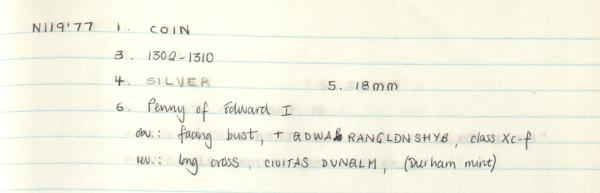 N119'77 1. COIN
3. 1302-1310
4. SILVER 5. 18mm
6. Penny of Edward I
obv.: facing bust, + EDWAR RANGLDNSHYB, class Xc-f
rev.: long cross, CIVITAS DUNELM, (Durham mint)